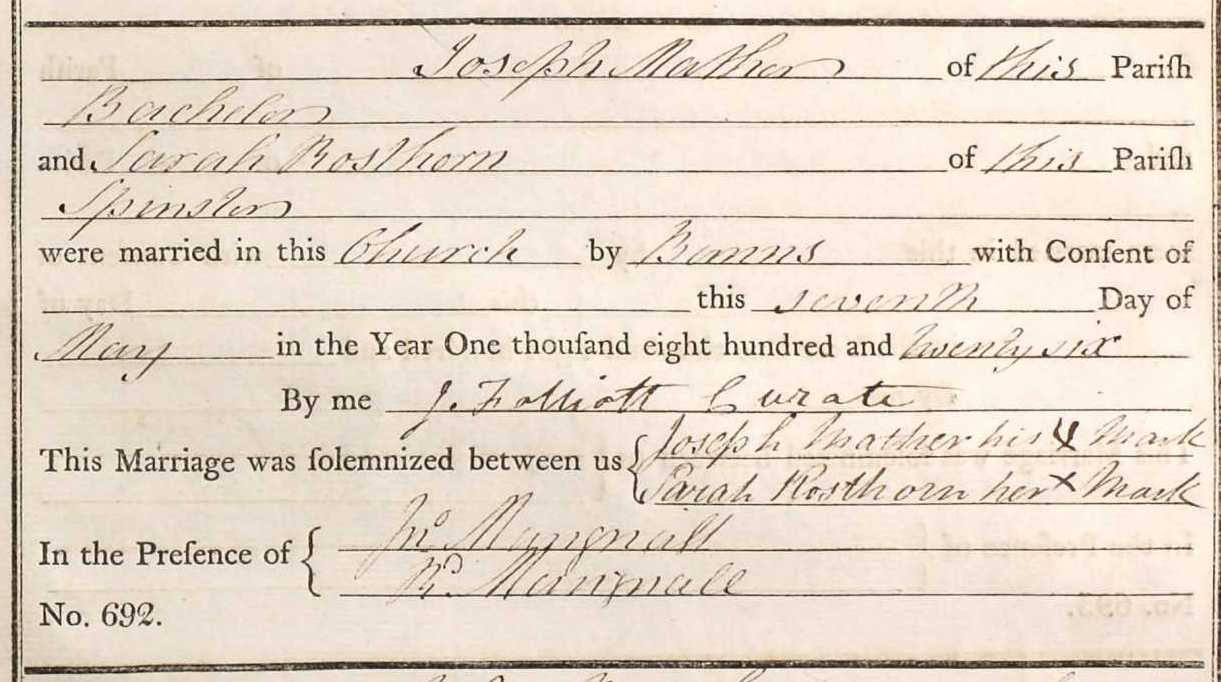 Joseph Mather of this Pariſh
Bachelor
and Sarah Rosthorn of this Pariſh
Spinster
were married in this Church by Banns with Conſent of
this seventh Day of
May in the Year One thouſand eight hundred and twenty six
By me J. Folliott Curate
This Marriage was ſolemnized between us { Joseph Mather his X Mark
Sarah Rosthorn her X Mark
In the Preſence of { Jnº Mangnall
Rᵈ Mangnall
No. 692.